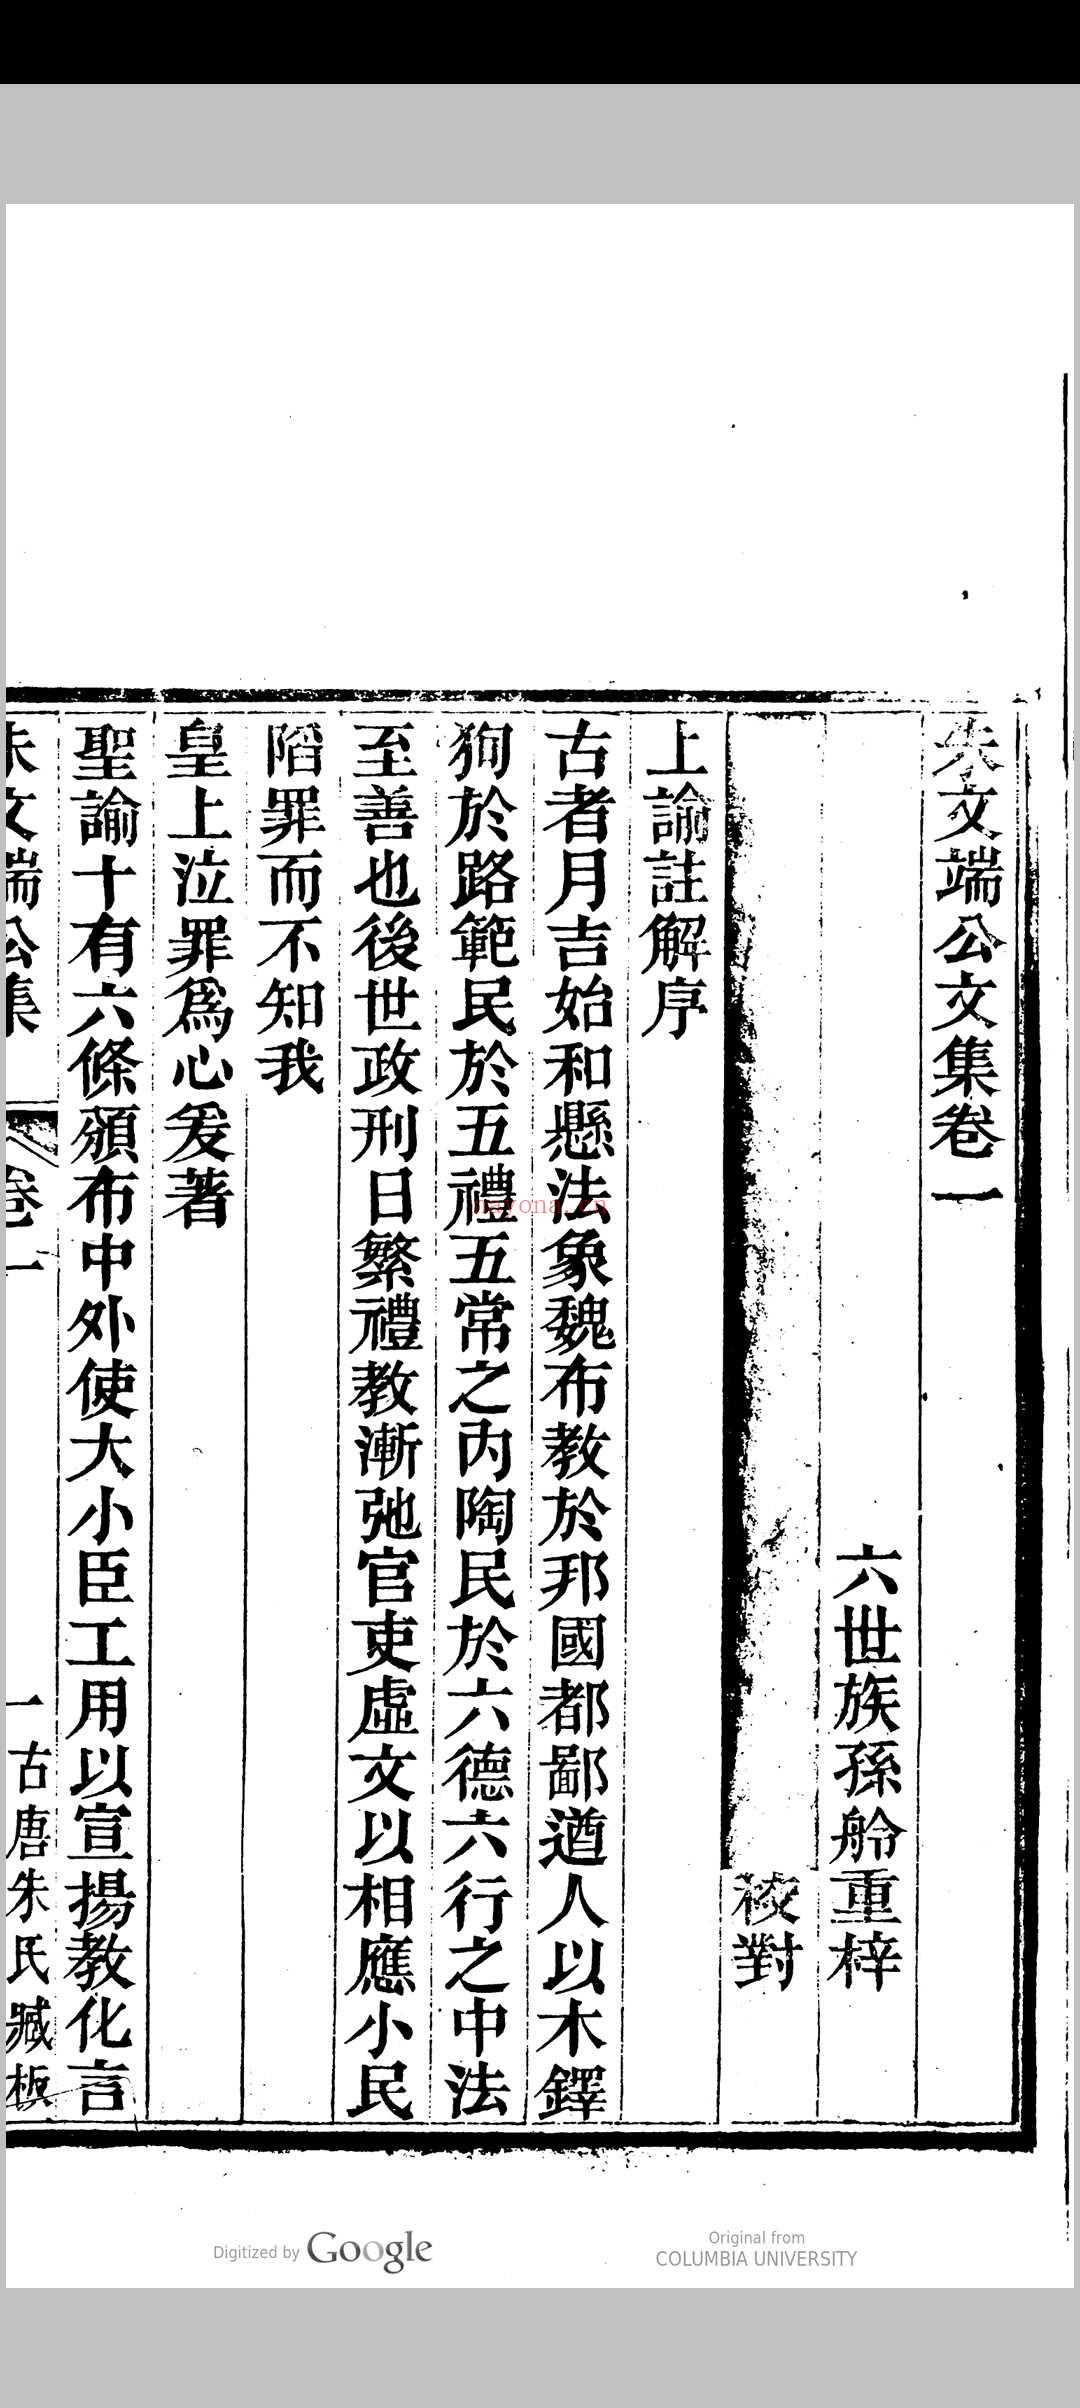 朱文端公文集卷一
六世族孫舲重梓
校對
上諭註解序
古者月吉始和懸法象魏布教於邦國都鄙遒人以木鐸
狥於路範民於五禮五常之内陶民於六德六行之中法
至善也後世政刑日繁禮教漸弛官吏虛文以相應小民
陷罪而不知我
皇上泣罪爲心爰著
聖諭十有六條頒布中外使大小臣工用以宣揚教化言
朱文端公集 卷一 一 古唐朱氏臧板
nayona.cn
Digitized by Google
Original from
COLUMBIA UNIVERSITY